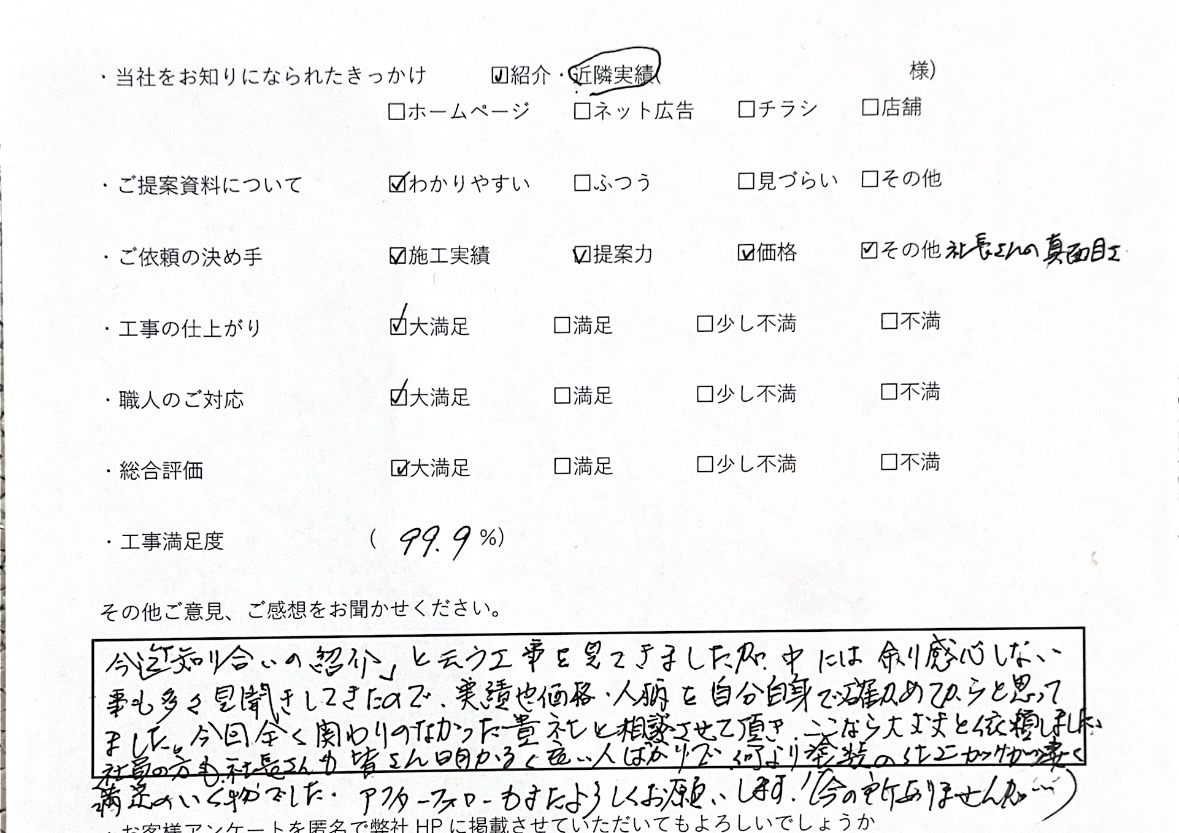 ・当社をお知りになられたきっかけ ☑紹介・近隣実績( 様)
☐ホームページ ☐ネット広告 ☐チラシ ☐店舗
・ご提案資料について ☑わかりやすい ☐ふつう ☐見づらい ☐その他
・ご依頼の決め手 ☑施工実績 ☑提案力 ☑価格 ☑その他 社長さんの真面目さ
・工事の仕上がり ☑大満足 ☐満足 ☐少し不満 ☐不満
・職人のご対応 ☑大満足 ☐満足 ☐少し不満 ☐不満
・総合評価 ☑大満足 ☐満足 ☐少し不満 ☐不満
・工事満足度 ( 99.9 %)
その他ご意見、ご感想をお聞かせください。
今迄「知り合いの紹介」と云う工事を見てきましたが、中には余り感心しない
事も多々見聞きしてきたので、実績や価格・人柄を自分自身で確かめてからと思って
ました。今回全く関わりのなかった貴社と相談させて頂き、ここなら大丈夫と依頼しました。
社員の方も、社長さんも皆さん明かるく良い人ばかりで、何より塗装の仕上がりが凄く
満足のいく物でした。アフターフォローもまたよろしくお願いします!(今の所ありませんが…)
・お客様アンケートを匿名で弊社HPに掲載させていただいてもよろしいでしょうか